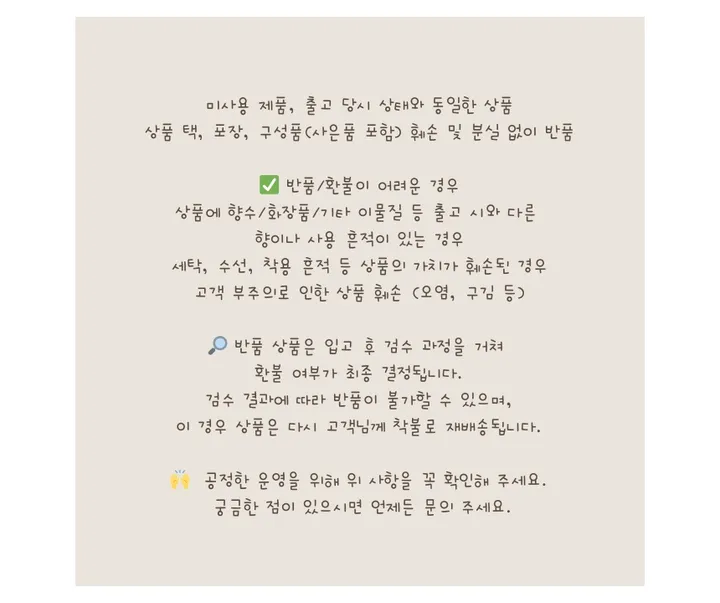 미사용 제품, 출고 당시 상태와 동일한 상품
상품 택, 포장, 구성품(사은품 포함) 훼손 및 분실 없이 반품
✅ 반품/환불이 어려운 경우
상품에 향수/화장품/기타 이물질 등 출고 시와 다른
향이나 사용 흔적이 있는 경우
세탁, 수선, 착용 흔적 등 상품의 가치가 훼손된 경우
고객 부주의로 인한 상품 훼손 (오염, 구김 등)
🔎 반품 상품은 입고 후 검수 과정을 거쳐
환불 여부가 최종 결정됩니다.
검수 결과에 따라 반품이 불가할 수 있으며,
이 경우 상품은 다시 고객님께 착불로 재배송됩니다.
🙌 공정한 운영을 위해 위 사항을 꼭 확인해 주세요.
궁금한 점이 있으시면 언제든 문의 주세요.